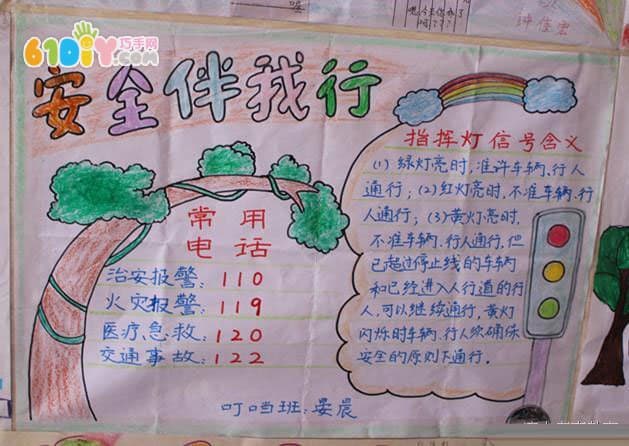 61DIY巧手网
安全伴我行
指挥灯信号含义
(1)绿灯亮时,准许车辆、行人
通行;(2)红灯亮时,不准车辆、行
人通行;(3)黄灯亮时,
不准车辆、行人通行,但
已超过停止线的车辆
和已经进入人行道的行
人,可以继续通行,黄灯
闪烁时车辆、行人须确保
安全的原则下通行.
常用
电话
治安报警:110
火灾报警:119
医疗急救:120
交通事故:122
叮当班:晏晨